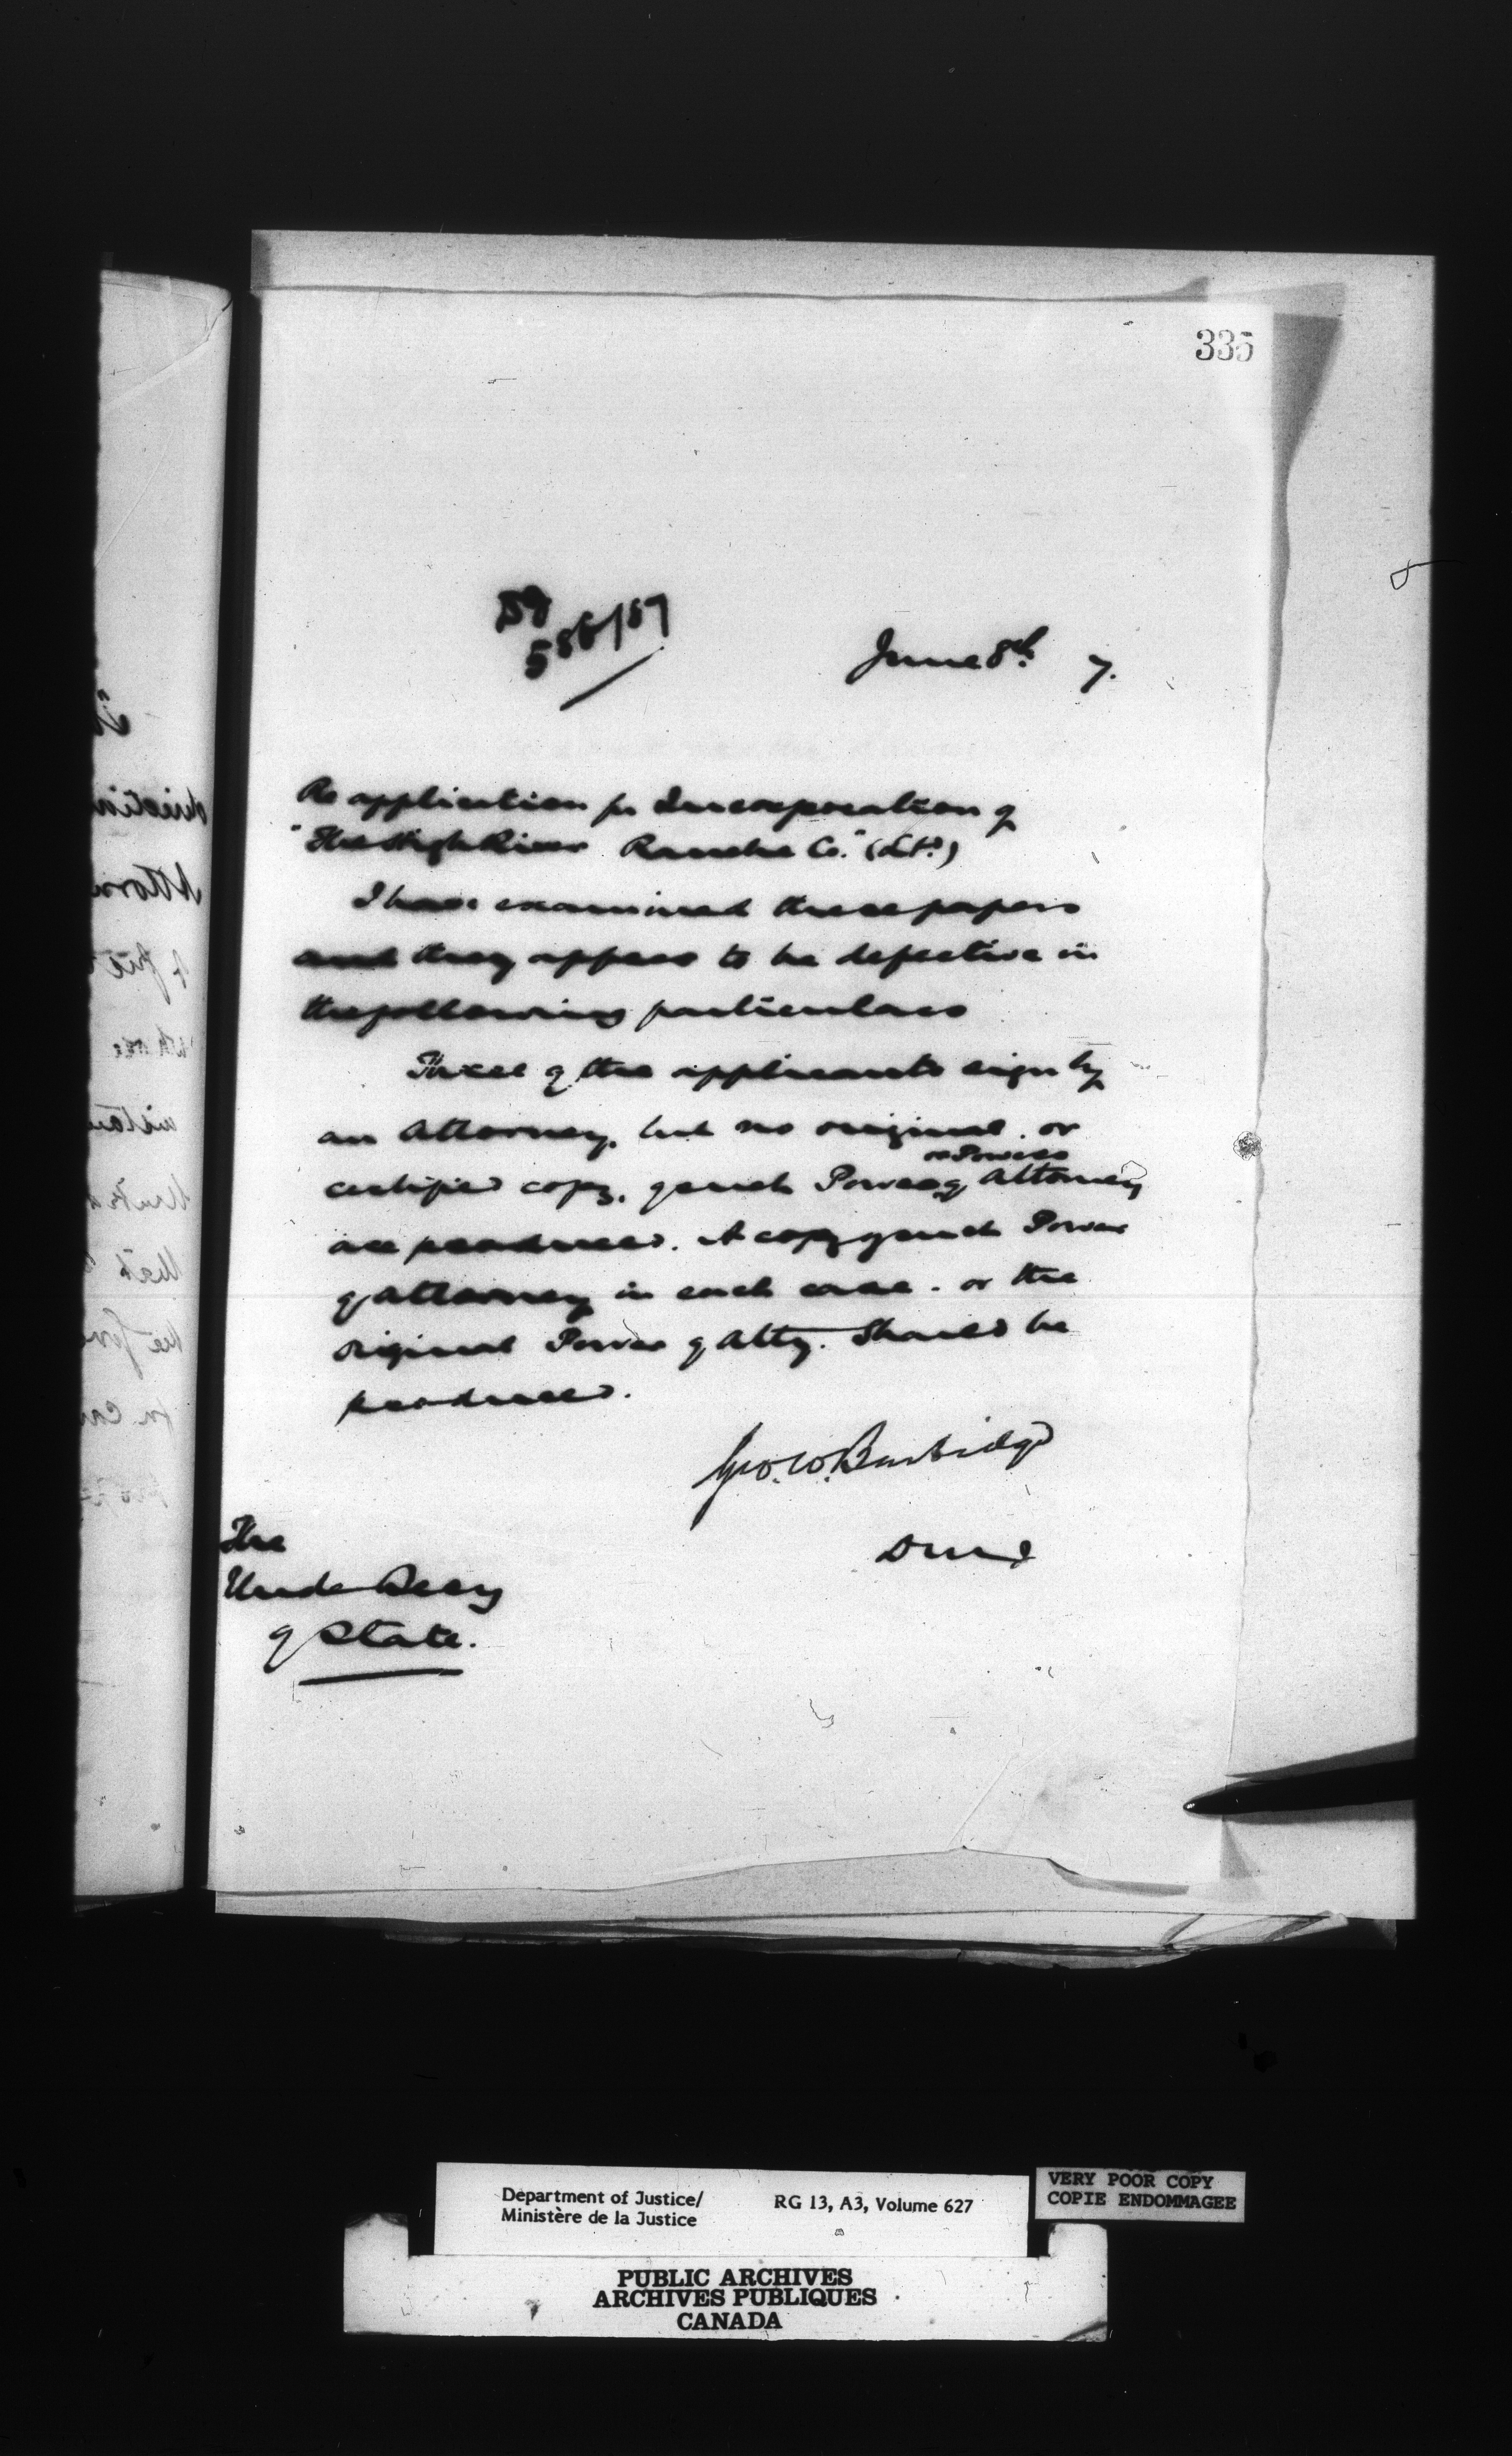 335
586/87
June 8th 7.
Re application for Incorporation of
"The High River Ranche Co." (Ltd)
I have examined these papers
and they appear to be defective in
the following particulars
Three of the applicants sign by
an Attorney, but no original or
or Powers
certified copy, of such Power of Attorney
are produced. A copy of such Power
of Attorney in each case. or the
original Power of Atty. should be
produced.
Geo. W. Burbidge
DMJ
The
Under Secy
of State.
Department of Justice/
Ministère de la Justice
RG 13, A3, Volume 627
VERY POOR COPY
COPIE ENDOMMAGEE
PUBLIC ARCHIVES
ARCHIVES PUBLIQUES
CANADA